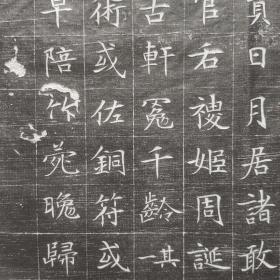 貞日月居諸敢
官右禖姬周誕
古軒冤千齡一其
術或佐銅符或
早陪竹菀晚歸